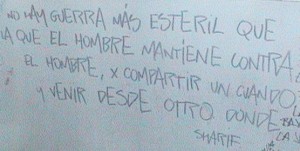 NO HAY GUERRA MÁS ESTERIL QUE
LA QUE EL HOMBRE MANTIENE CONTRA
EL HOMBRE, X COMPARTIR UN CUANDO
Y VENIR DESDE OTRO DONDE
SHARIF
LA